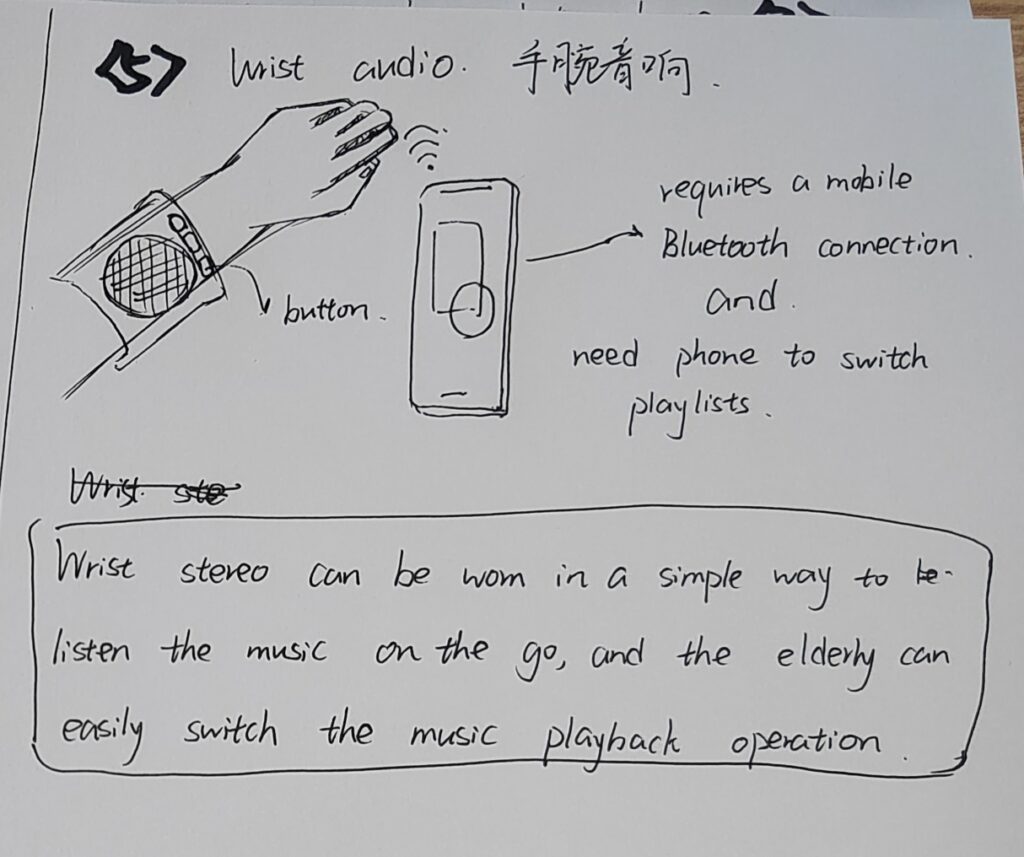 <5> Wrist audio. 手腕音响.
requires a mobile
Bluetooth connection.
and.
need phone to switch
playlists.
button.
Wrist ste
Wrist stereo can be worn in a simple way to be
listen the music on the go, and the elderly can
easily switch the music playback operation.